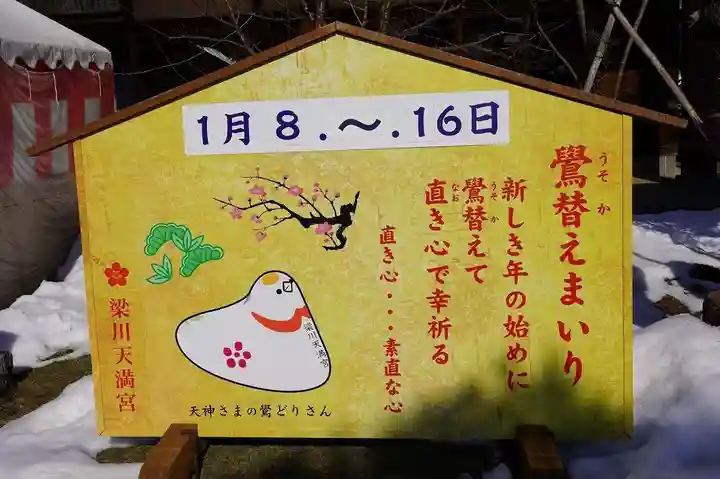 1月8.～.16日
鷽替えまいり
うそか
新しき年の始めに
鷽替えて
うそか
直き心で幸祈る
なお
直き心・・・素直な心
梁川天満宮
梁川天満宮
天神さまの鷽どりさん